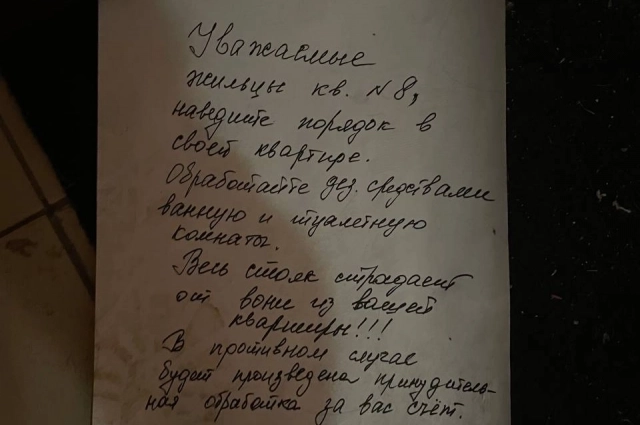 Уважаемые
жильцы кв. N 8,
наведите порядок в
своей квартире.
Обработайте дез. средствами
ванную и туалетную
комнаты.
Весь стояк страдает
от вони из вашей
квартиры!!!
В противном случае
будет произведена принудитель-
ная обработка за вас счёт.